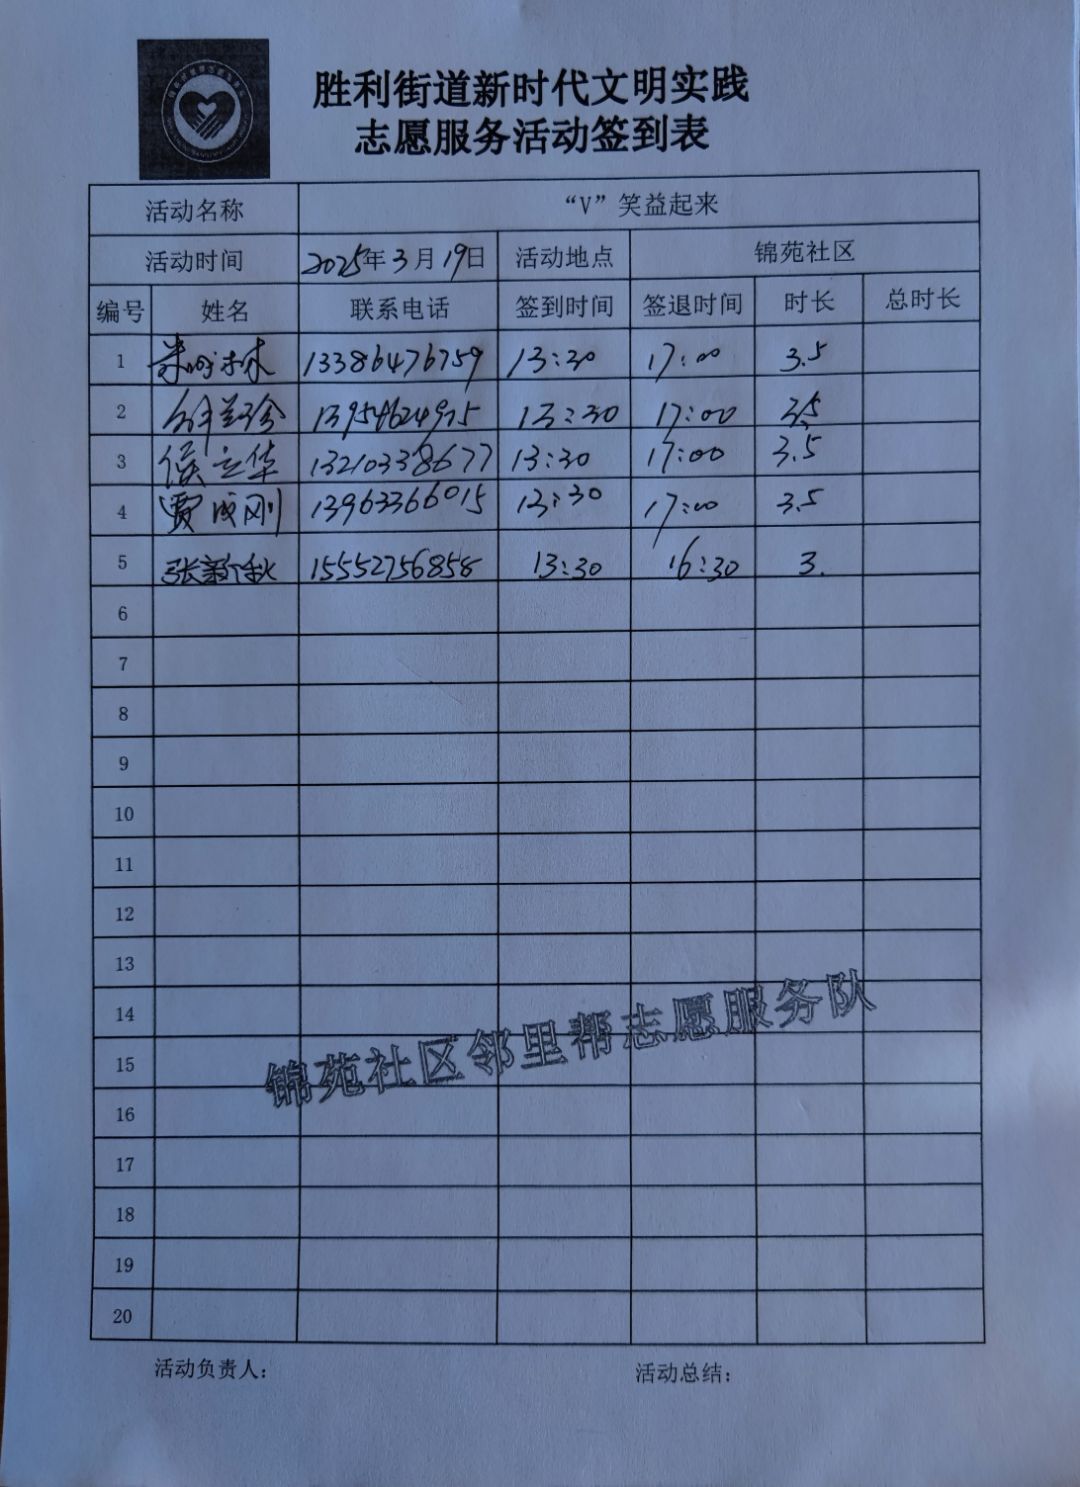 胜利街道新时代文明实践
志愿服务活动签到表
活动名称 “V”笑益起来
活动时间 2025年3月19日 活动地点 锦苑社区
编号 姓名 联系电话 签到时间 签退时间 时长 总时长
1 林 13386476759 13:30 17:00 3.5
2 13954624975 13:30 17:00 3.5
3 侯立华 13210338677 13:30 17:00 3.5
4 贾成刚 13963366015 13:30 17:00 3.5
5 张新秋 15552756858 13:30 16:30 3.
6
7
8
9
10
11
12
13
14
15
锦苑社区邻里帮志愿服务队
16
17
18
19
20
活动负责人: 活动总结: